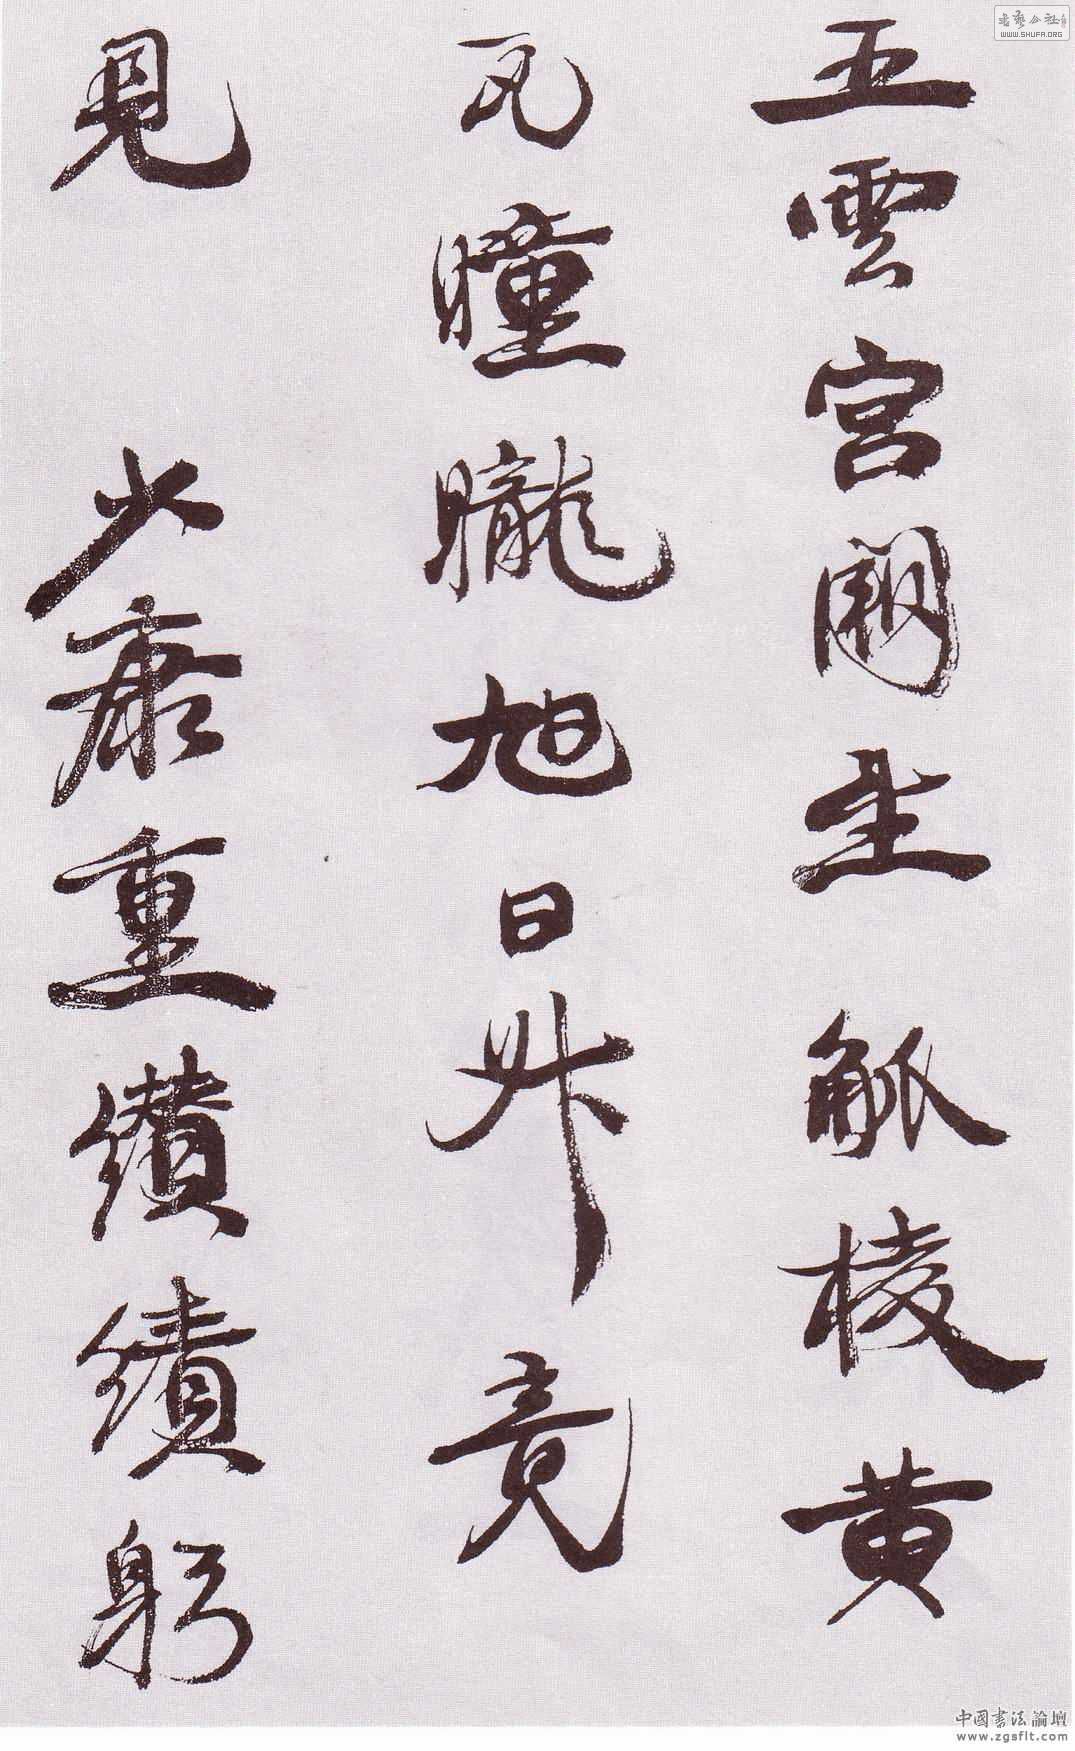 五雲宮闕觚棱黄
瓦曈曨旭日升竟
見少康重纘績躬
書藝公社
WWW.SHUFA.ORG
中國書法論壇
www.zgsflt.com